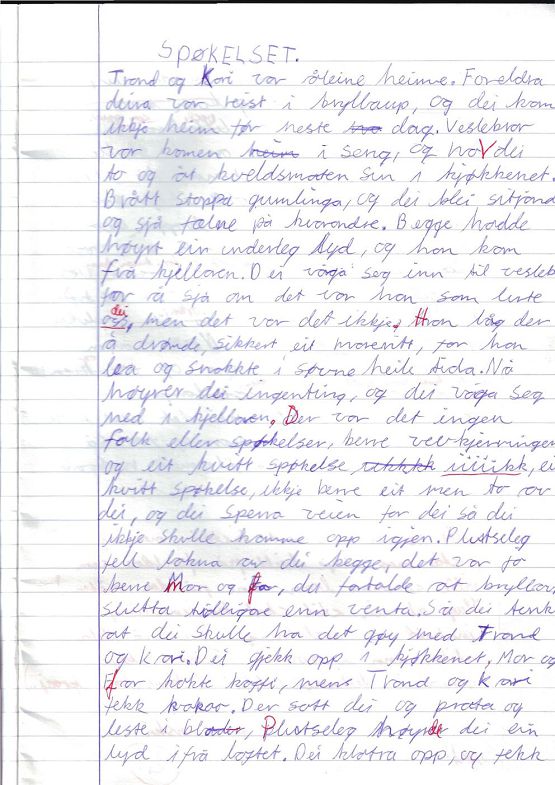 SPØKELSET.
Trond og Kari var åleine heime. Foreldra
deira var reist i bryllaup, og dei kom
ikkje heim før neste dag. Veslebror
var komen i seng, og no dei
to og åt kveldsmaten sin i kjøkkenet.
Brått stoppa gumlinga, og dei blei sitjand
og sjå tælne på kvarandre. Begge hadde
høyrt ein underleg lyd, og han kom
frå kjellaren. Dei våga seg inn til vesleb
for å sjå om det var han som lurte
dei, men det var det ikkje. Han låg der
å drømde, sikkert eit mareritt, for han
lea og snakkte i søvne heile tida. Nå
høyrer dei ingenting, og dei våga seg
ned i kjellaren. Der var det ingen
folk eller spøkelser, berre vedkjerringen
og eit kvitt spøkelse iiiiikk, ei
kvitt spøkelse, ikkje berre eit men to av
dei, og dei sperra veien for dei så dei
ikkje skulle komme opp igjen. Plutseleg
fell lakna av dei begge, det var jo
berre Mor og far, dei fortalde at bryllau
slutta tidligare enn venta. Så dei tenk
at dei skulle ha det gøy med Trond
og Kari. Dei gjekk opp i kjøkkenet, Mor og
far kokte kaffi, mens Trond og Kari
fekk kakao. Der satt dei og prata og
leste i blader, Plutseleg høyrde dei ein
lyd ifrå loftet. Dei klatra opp, og fekk